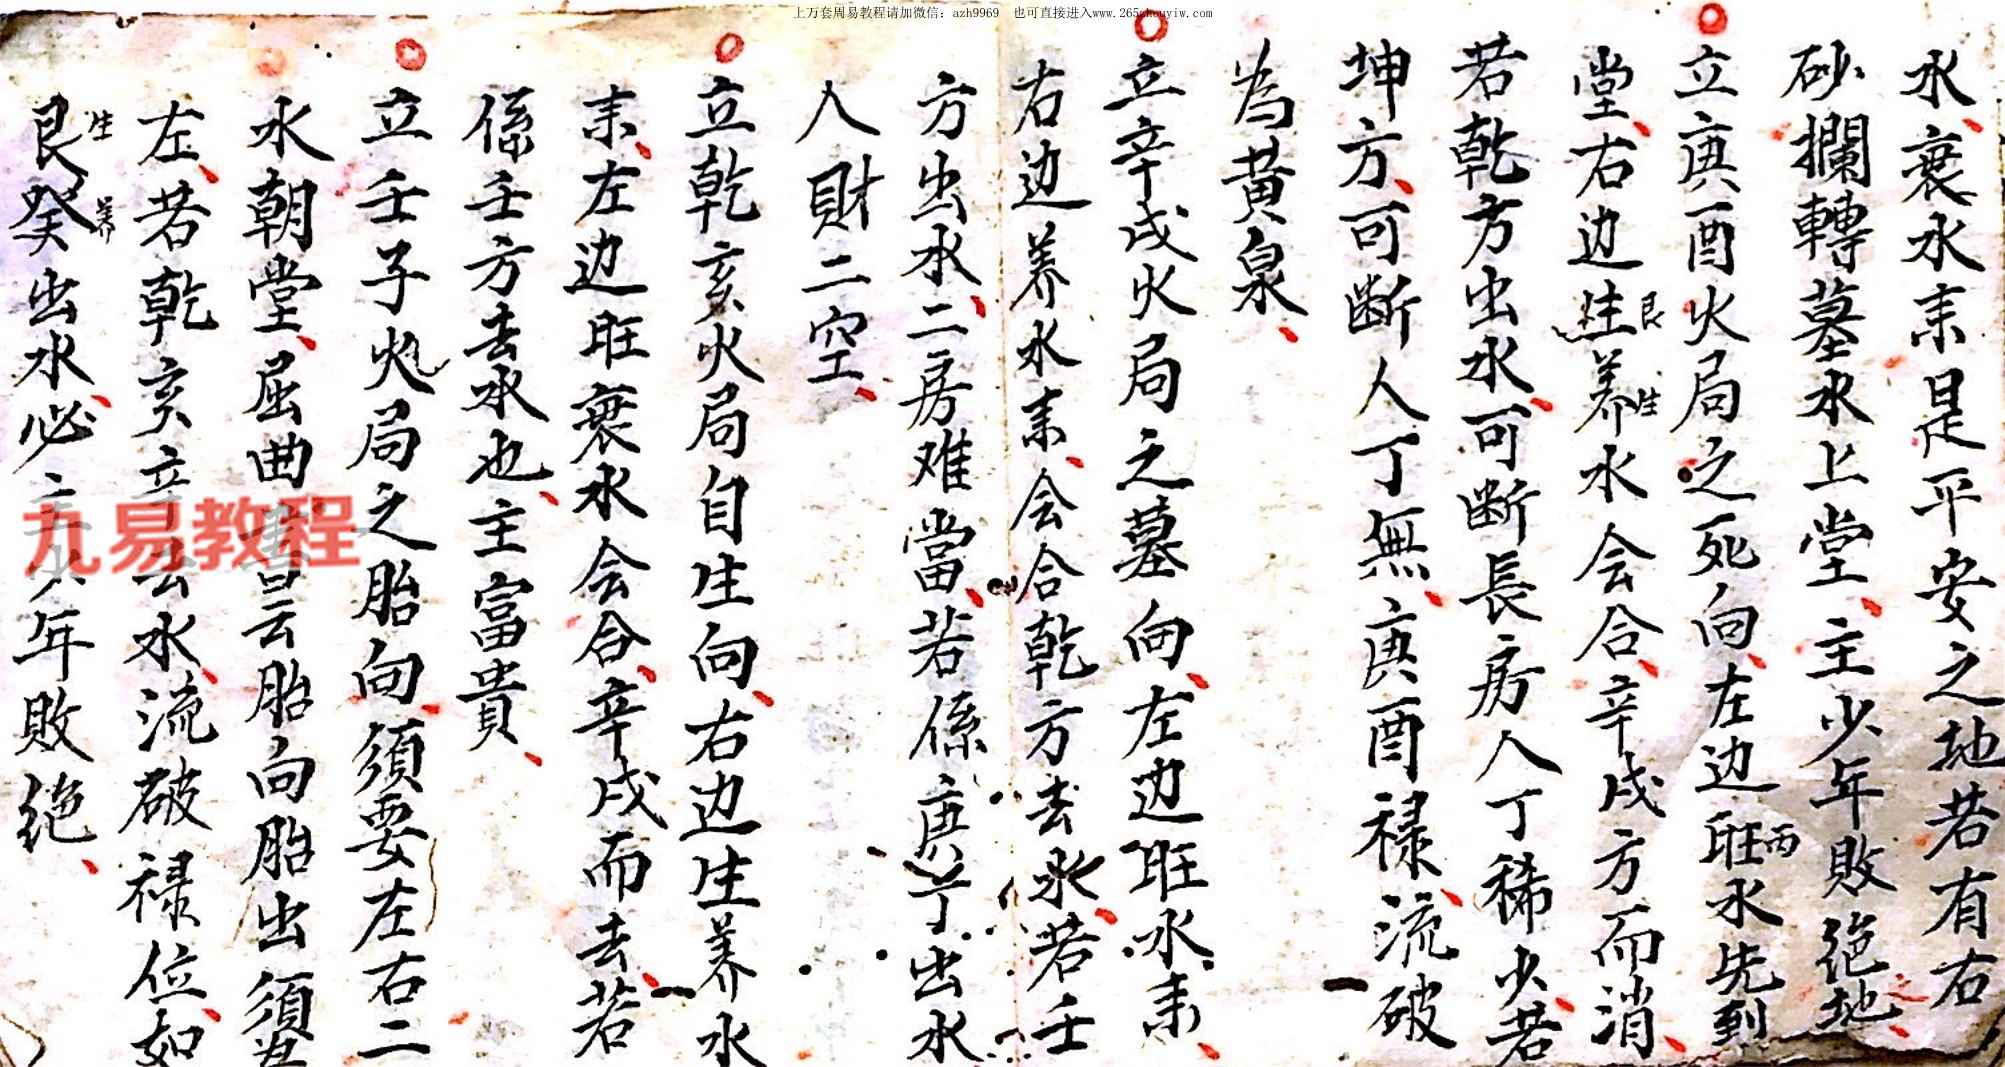 上万套周易教程请加微信：azh9969 也可直接进入www.265zhouyiw.com
水、衰水来是平安之地若有右
砂攔轉墓水上堂、主少年敗絕地、
立庚酉火局之死向、左边旺丙水先到
堂、右边生艮养生水会合、辛戌方而消、
若乾方出水、可断長房人丁稀少、若
坤方、可断人丁無、庚酉禄、流破
為黄泉、
立辛戌火局之墓向、左边旺水来、
右边养水来、会合乾方去水、若壬
方出水、二房难當、若係庚丁出水
人財二空、
立乾亥火局自生向、右边生养水
来、左边旺衰水会合、辛戌而去、若
係壬方去水也、主富貴、
立壬子火局之胎向、須要左右二
水朝堂、屈曲 昙云胎向胎出須
左、若乾亥辛 去水、流破禄位、如
艮生癸养出水、必主少年敗絕、
九易教程